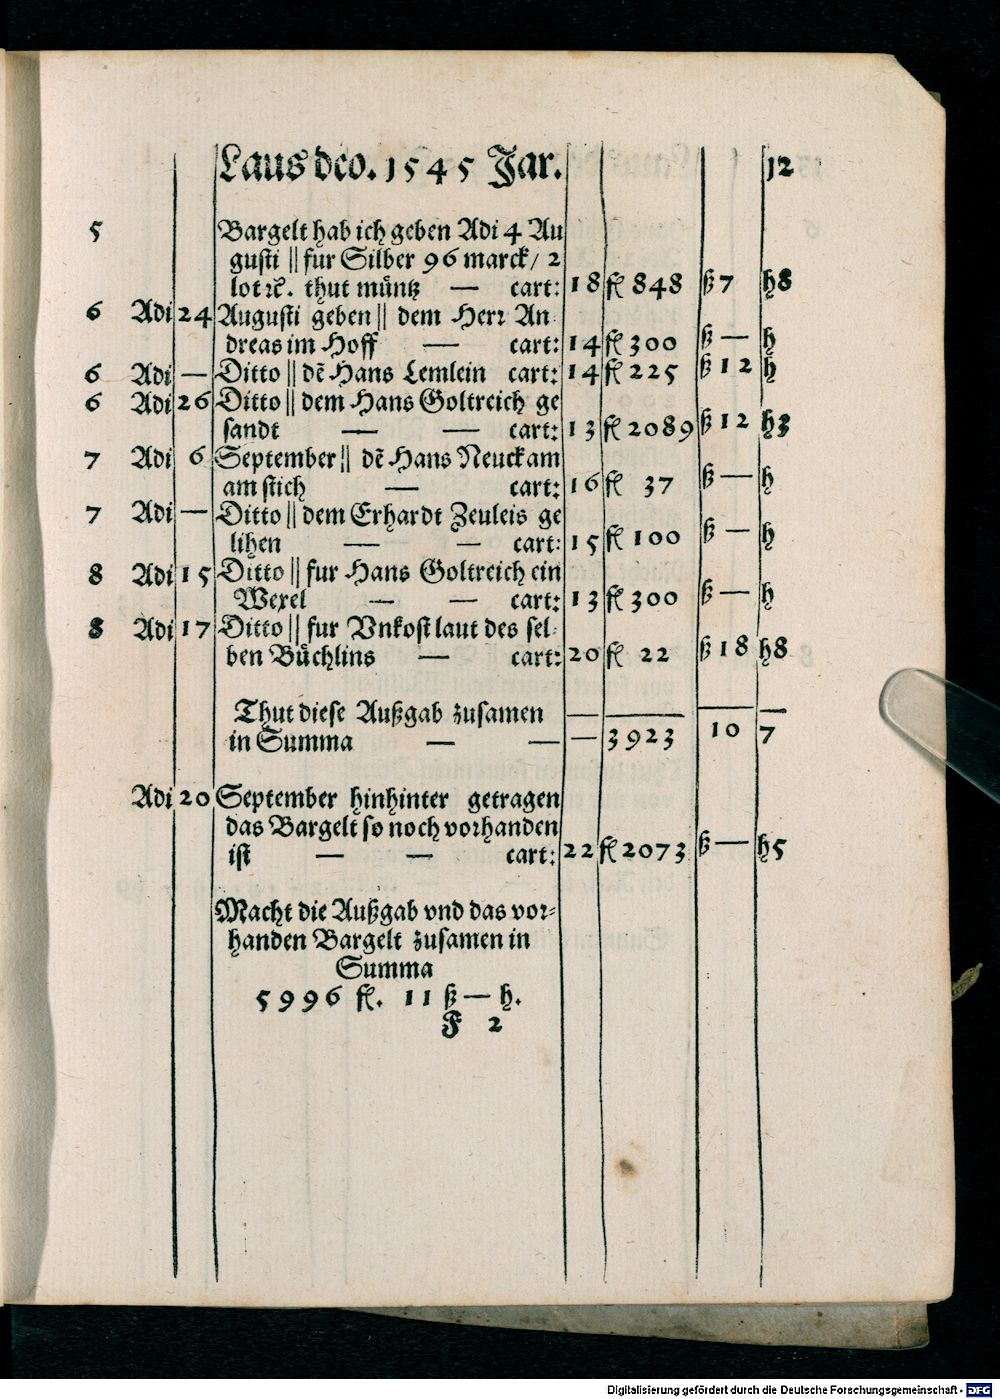 Laus deo. 1545 Jar. 12
5 Bargelt hab ich geben Adi 4 Au
gusti || fur Silber 96 marck/ 2
lot ꝛc̄. thut müntz — cart: 18 fl 848 ß 7 h 8
6 Adi 24 Augusti geben || dem Herr An
dreas im Hoff — cart: 14 fl 300 ß — h
6 Adi — Ditto || dē Hans Lemlein cart: 14 fl 225 ß 12 h
6 Adi 26 Ditto || dem Hans Goltreich ge
sandt — — cart: 13 fl 2089 ß 12 h 3
7 Adi 6 September || dē Hans Neuckam
am stich — cart: 16 fl 37 ß — h
7 Adi — Ditto || dem Erhardt Zeuleis ge
lihen — — cart: 15 fl 100 ß — h
8 Adi 15 Ditto || fur Hans Goltreich ein
Wexel — — cart: 13 fl 300 ß — h
8 Adi 17 Ditto || fur Vnkost laut des sel-
ben Büchlins — cart: 20 fl 22 ß 18 h 8
Thut diese Außgab zusamen
in Summa — — — 3923 10 7
Adi 20 September hinhinter getragen
das Bargelt so noch vorhanden
ist — — cart: 22 fl 2073 ß — h 5
Macht die Außgab vnd das vor-
handen Bargelt zusamen in
Summa
5996 fl. 11 ß — h.
F 2
Digitalisierung gefördert durch die Deutsche Forschungsgemeinschaft - DFG